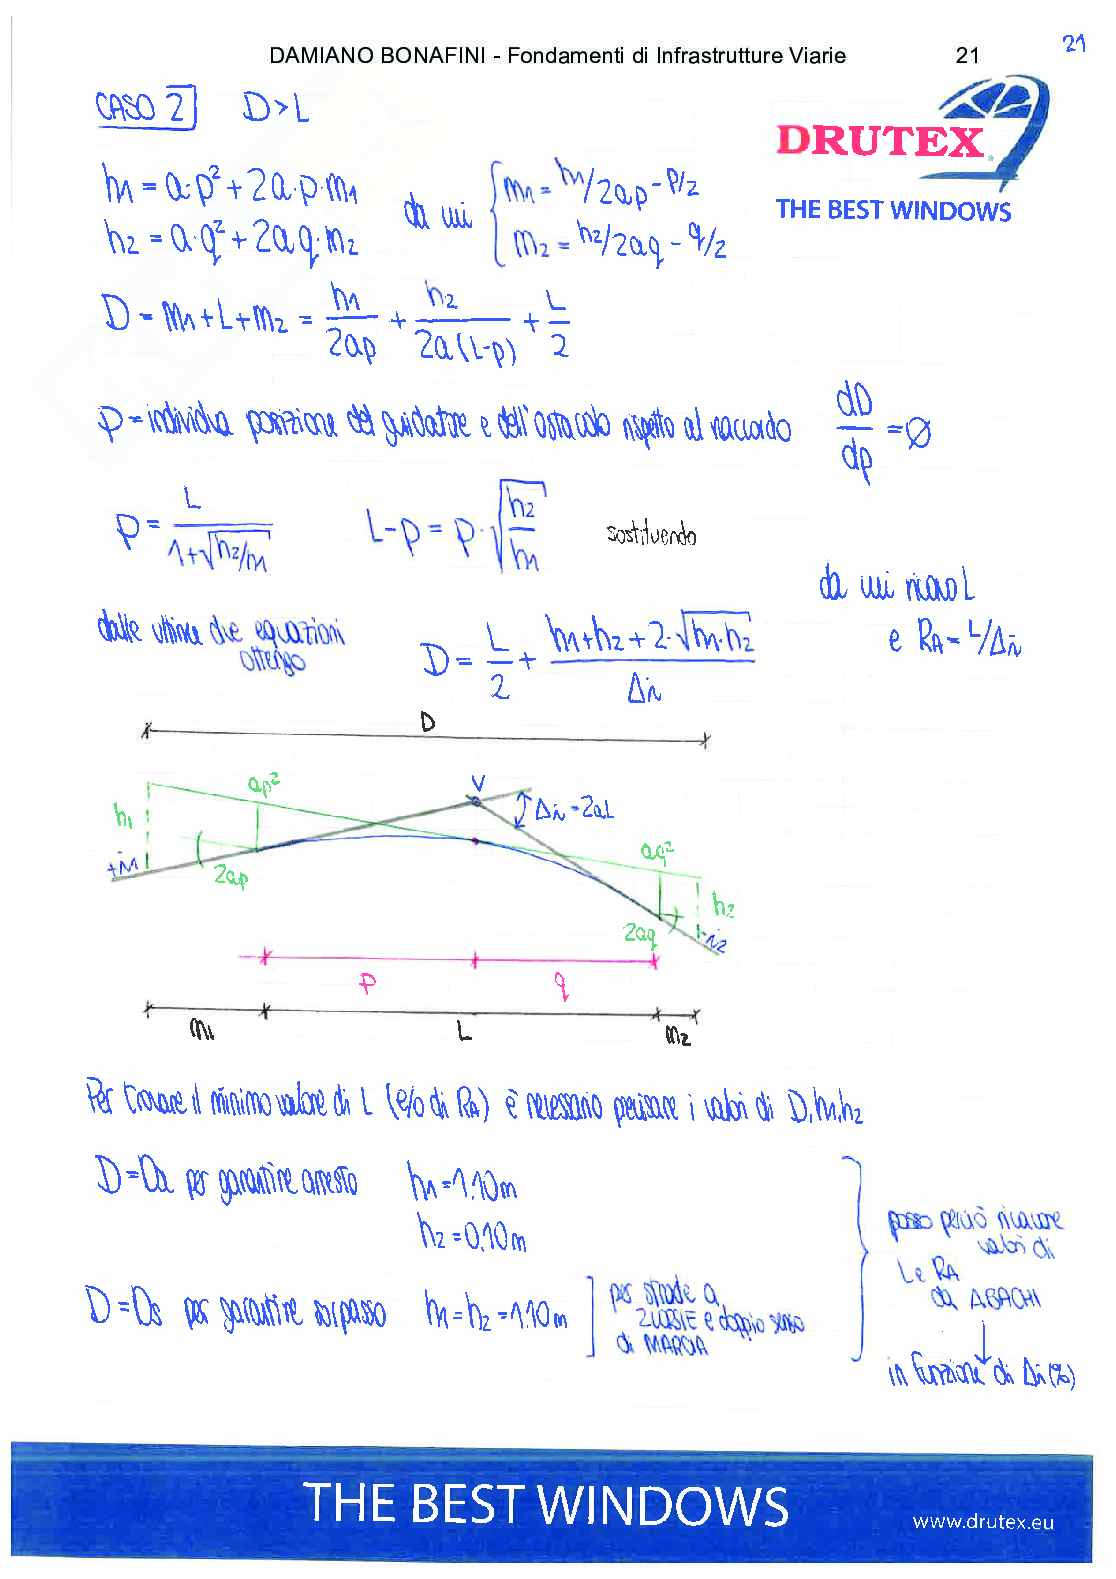 DAMIANO BONAFINI - Fondamenti di Infrastrutture Viarie 21
21
CASO 2 D>L
DRUTEX
THE BEST WINDOWS
h1 = a·p² + 2a·p·m1
h2 = a·q² + 2aq·m2
da cui
m1 = h1/2ap - p/2
m2 = h2/2aq - q/2
D = m1 + L + m2 = h1/2ap + h2/2a(L-p) + L/2
p = individua posizione del guidatore e dell'ostacolo rispetto al raccordo dD/dp = Ø
p = L/1+√h2/h1 L-p = p·√h2/h1 sostituendo
dalle ultime due equazioni ottengo
D = L/2 + h1+h2+2·√h1·h2/Δi
da cui ricavo L
e RA = L/Δi
D
ap²
V
Δi = 2aL
h1
+i1
2ap
aq²
h2
2aq
-i2
p q
m1 L m2
Per trovare il minimo valore di L (e/o di RA) è necessario precisare i valori di D, h1, h2
D = Da per garantire arresto h1 = 1.10m
h2 = 0.10m
D = Ds per garantire sorpasso h1 = h2 = 1.10m
per strade a
2 CORSIE e doppio senso
di MARCIA
posso perciò ricavare
valori di
L e RA
da ABACHI
↓
in funzione di Δi (%)
THE BEST WINDOWS
www.drutex.eu